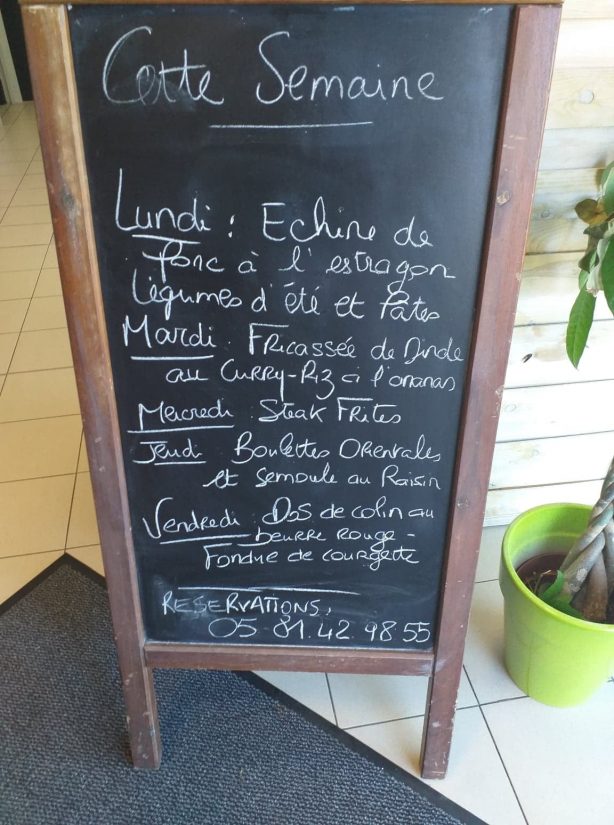 Cette Semaine
Lundi : Echine de
Porc à l'estragon
Légumes d'été et Pâtes
Mardi : Fricassée de Dinde
au Curry-Riz à l'ananas
Mercredi : Steak Frites
Jeudi : Boulettes Orientales
et Semoule au Raisin
Vendredi : Dos de colin au
beurre rouge -
Fondue de courgette
RESERVATIONS,
05 81.42.98 55